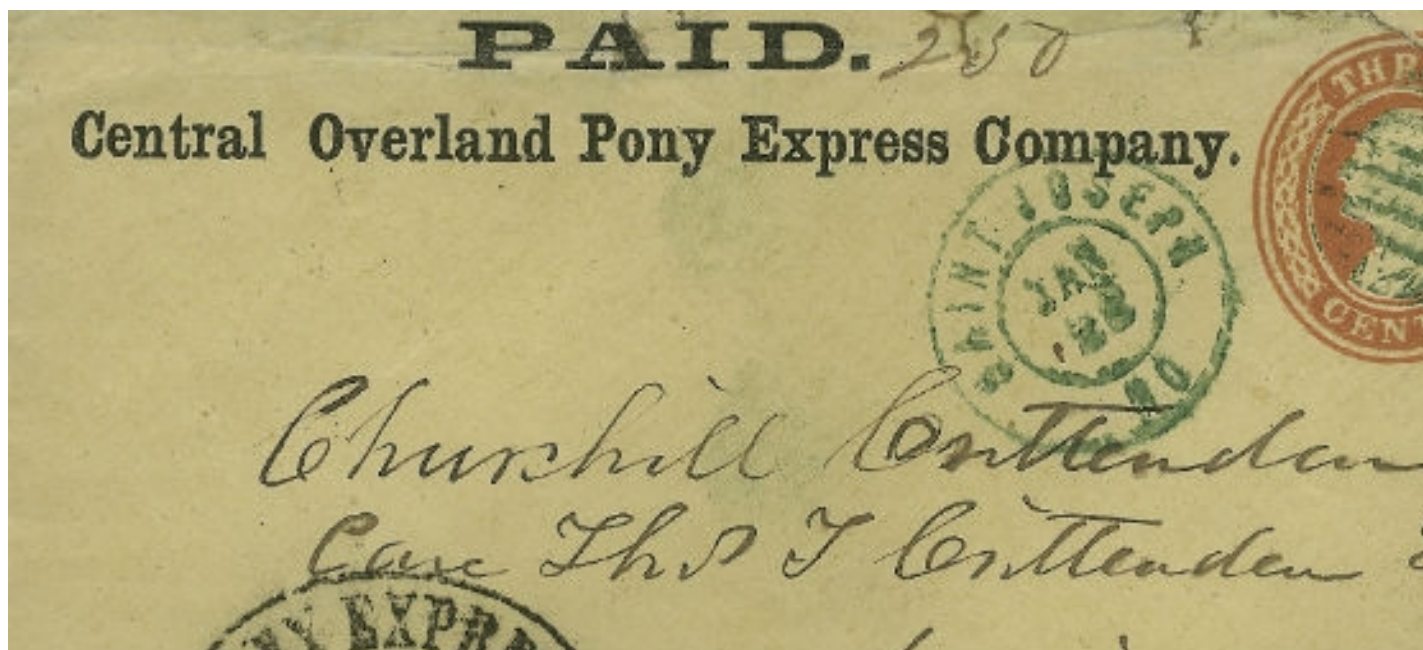 PAID. 250
Central Overland Pony Express Company.
THR
CENT
SAINT JOSEPH
JAN
MO
Churchill Crittenden
Care Thos T Crittenden
NY EXPRE